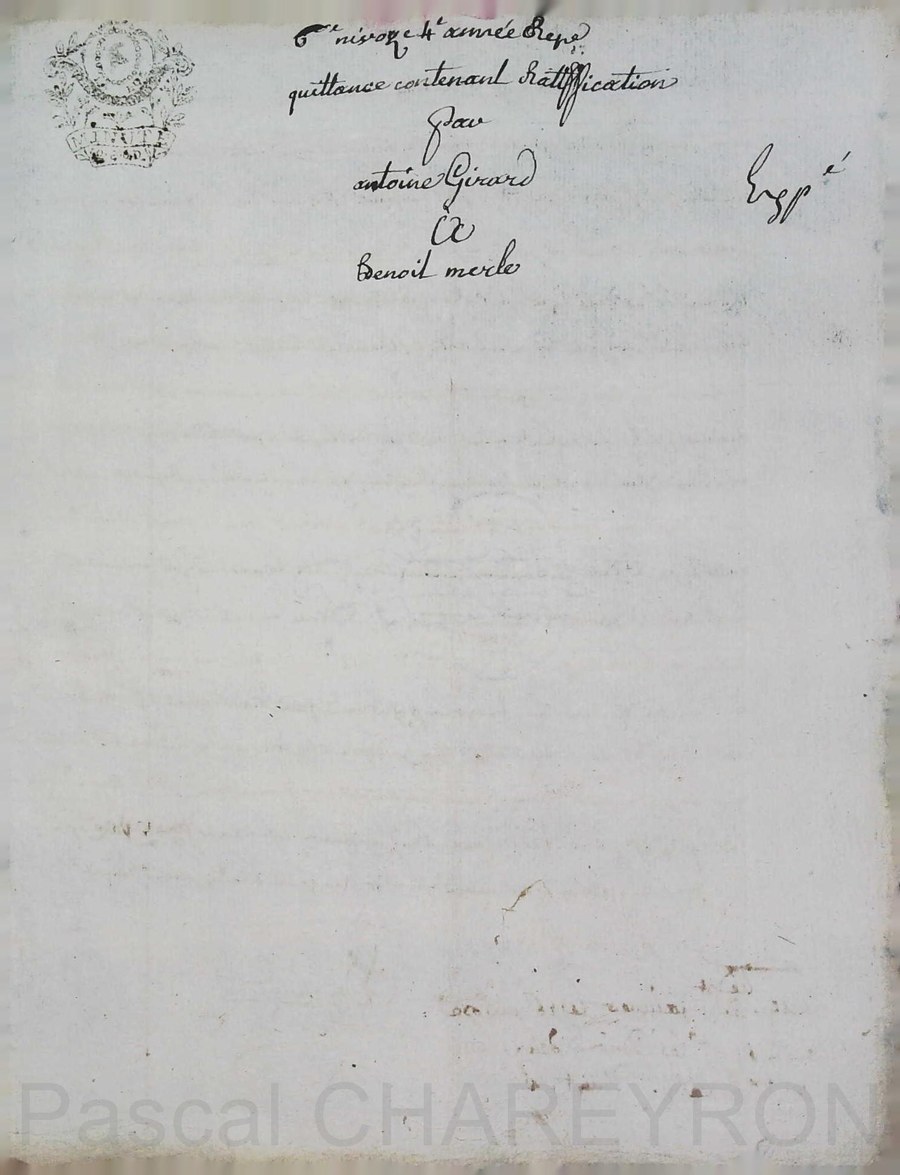 6e nivoze 4e année Repe
quittance contenant Ratiffication
par
antoine Girard
a
Benoit merle
Expé
Pascal CHAREYRON